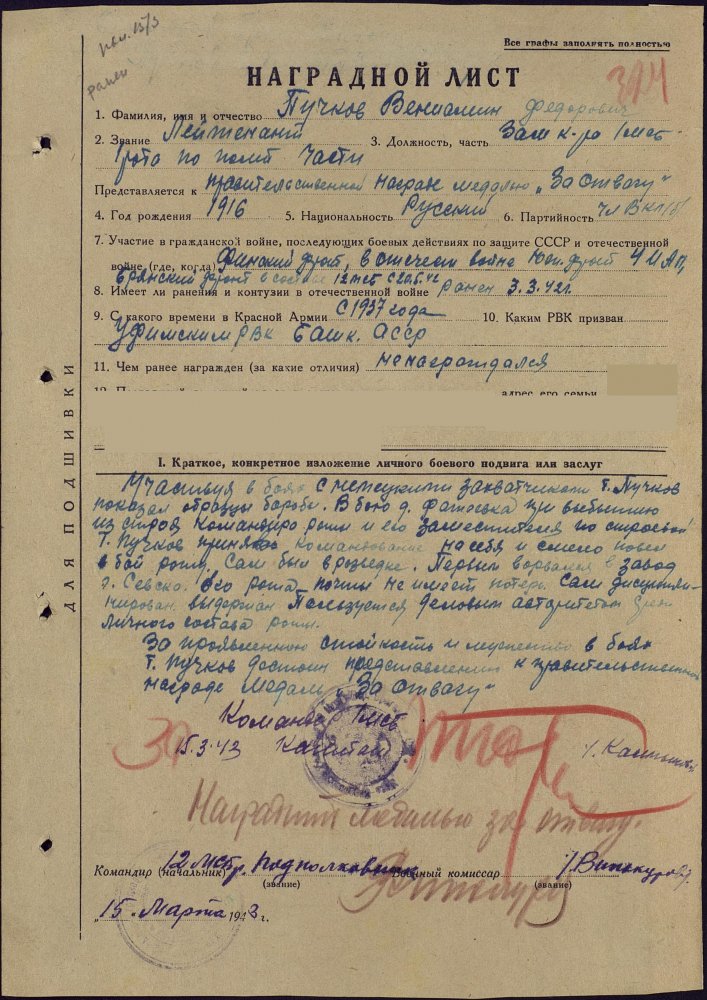 ранен
Все графы заполнять полностью
НАГРАДНОЙ ЛИСТ
1. Фамилия, имя и отчество Пучков Вениамин Федорович
2. Звание Лейтенант 3. Должность, часть Зам к-ра 1 мсб
рота по полит части
Представляется к правительственной награде медалью „За отвагу"
4. Год рождения 1916 5. Национальность Русский 6. Партийность чл ВКП(б)
7. Участие в гражданской войне, последующих боевых действиях по защите СССР и отечественной
войне (где, когда) Финский фронт, в отечествен войне Юж. фронт
Брянский фронт в составе 12 мсб с 20.5.42
8. Имеет ли ранения и контузии в отечественной войне ранен 3.3.42г.
9. С какого времени в Красной Армии С 1937 года 10. Каким РВК призван
Уфимским РВК Башк. АССР
11. Чем ранее награжден (за какие отличия) не награждался
адрес его семьи
ДЛЯ ПОДШИВКИ
I. Краткое, конкретное изложение личного боевого подвига или заслуг
Участвуя в боях с немецкими захватчиками т. Пучков
показал образцы борьбы. В бою д. при выбытии
из строя Командира роты и его заместителя по строевой
т. Пучков принял командование на себя и смело повел
в бой роту. Сам был в разведке. Первым ворвался в завод
г. Севска. Его рота почти не имеет потерь. Сам дисципли-
нирован, выдержан Пользуется деловым авторитетом сре
личного состава роты.
За проявленную стойкость и мужество в боях
т. Пучков достоин представления к правительственной
награде Медаль „За отвагу"
Командир 1 мсб
15.3.43 Капитан
Наградить медалью за отвагу.
Командир (начальник) 12 мсбр. Подполковник Военный комиссар /Винокуров/
(звание) (звание)
„15" Марта 1943 г.